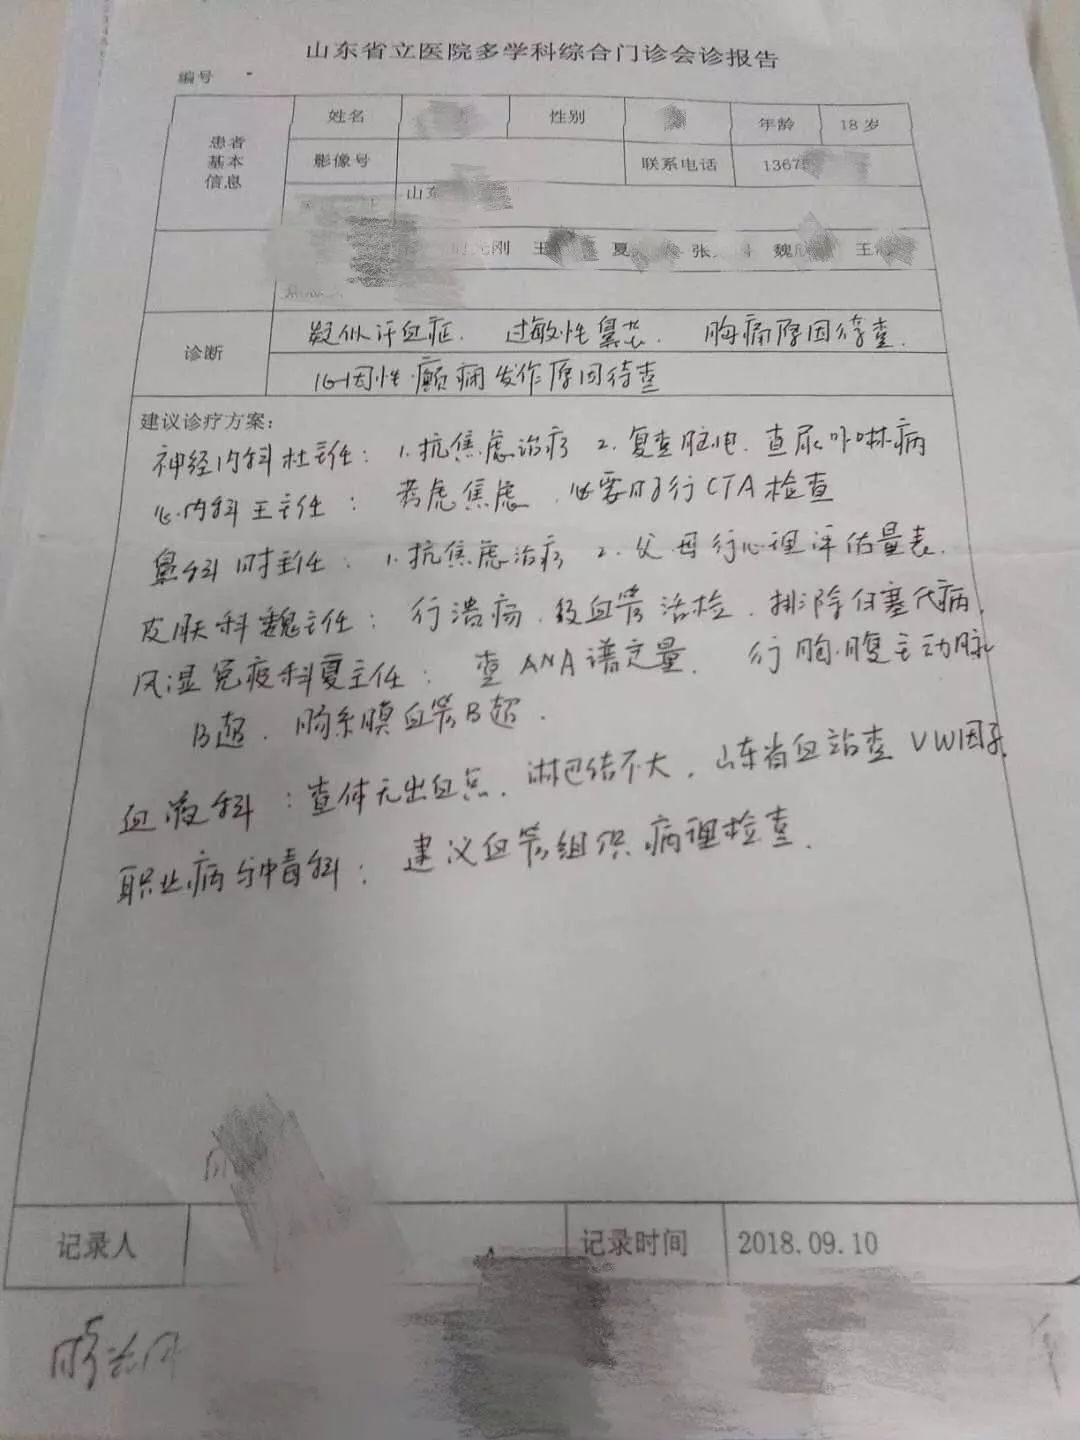 山东省立医院多学科综合门诊会诊报告
编号
患者基本信息 姓名 性别 年龄 18岁
影像号 联系电话 1367
山东
刚 王 夏 张 魏 王
诊断 疑似汗血症. 过敏性鼻炎. 胸痛原因待查.
因性癫痫发作原因待查
建议诊疗方案:
神经内科杜主任: 1.抗焦虑治疗 2.复查脑电.查尿卟啉病
心内科王主任: 考虑焦虑.必要时行CTA检查
鼻科时主任: 1.抗焦虑治疗 2.父母行心理评估量表.
皮肤科魏主任: 行溃疡.及血管活检.排除白塞氏病.
风湿免疫科夏主任: 查ANA谱定量. 行胸.腹主动脉
B超.肠系膜血管B超.
血液科: 查体无出血点.淋巴结不大.山东省血站查VW因子
职业病与中毒科: 建议血管组织病理检查.
记录人 记录时间 2018.09.10